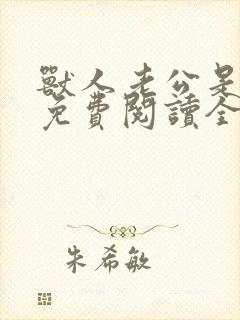 獸人老公是
免費閱讀全
朱希敏